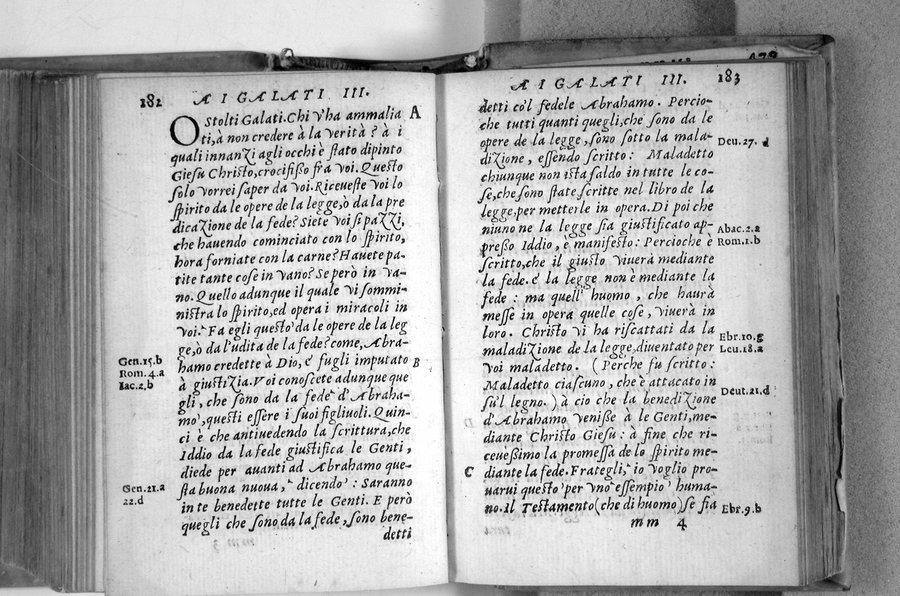 182 A I GALATI III.
A
O Stolti Galati. Chi v'ha ammalia
ti, à non credere à la verità? à i
quali innanzi agli occhi è stato dipinto
Giesu Christo, crocifisso fra voi. Questo
solo vorrei saper da voi. Riceveste voi lo
spirito da le opere de la legge, ò da la pre
dicazione de la fede? Siete voi sì pazzi,
che hauendo cominciato con lo spirito,
hora forniate con la carne? Hauete pa-
tite tante cose in vano? Se però in va-
no. Quello adunque il quale vi sommi-
nistra lo spirito, ed opera i miracoli in
voi. Fa egli questo da le opere de la leg
ge, ò dal'udita de la fede? come, Abra-
Gen.15.b
hamo credette à Dio, e' fugli imputato
B
Rom.4.a
à giustizia. Voi conoscete adunque que
Iac.2,b
gli, che sono da la fede d'Abraha-
mo, questi essere i suoi figliuoli. Quin-
ci è che antivedendo la scrittura, che
Iddio da la fede giustifica le Genti,
diede per auanti ad Abrahamo que-
Gen.21.a
sta buona nuoua, dicendo: Saranno
22.d
in te benedette tutte le Genti. E però
quegli che sono da la fede, sono bene-
detti
A I GALATI III. 183
detti co'l fedele Abrahamo. Percio-
che tutti quanti quegli, che sono da le
opere de la legge, sono sotto la mala-
Deu.27.d
dizione, essendo scritto: Maladetto
chiunque non ista saldo in tutte le co-
se, che sono state scritte nel libro de la
legge, per metterle in opera. Di poi che
niuno ne la legge sia giustificato ap-
Abac.2.a
presso Iddio, e manifesto: Percioche è
Rom.1.b
scritto, che il giusto viuerà mediante
la fede. e' la legge non è mediante la
fede: ma quell' huomo, che haurà
messe in opera quelle cose, viuerà in
loro. Christo vi ha riscattati da la
Ebr.10.g
maladizione de la legge, diuentato per
Leu.18.a
voi maladetto. (Perche fu scritto:
Maladetto ciascuno, che è attacato in
Deut.21.d
su'l legno.) à cio che la benedizione
d'Abrahamo venisse à le Genti, me-
diante Christo Giesu: à fine che ri-
ceuessimo la promessa de lo spirito me-
C
diante la fede. Frategli, io voglio pro-
uarui questo per vno essempio huma-
no. Il Testamento (che di huomo) se sia
Ebr.9.b
mm 4